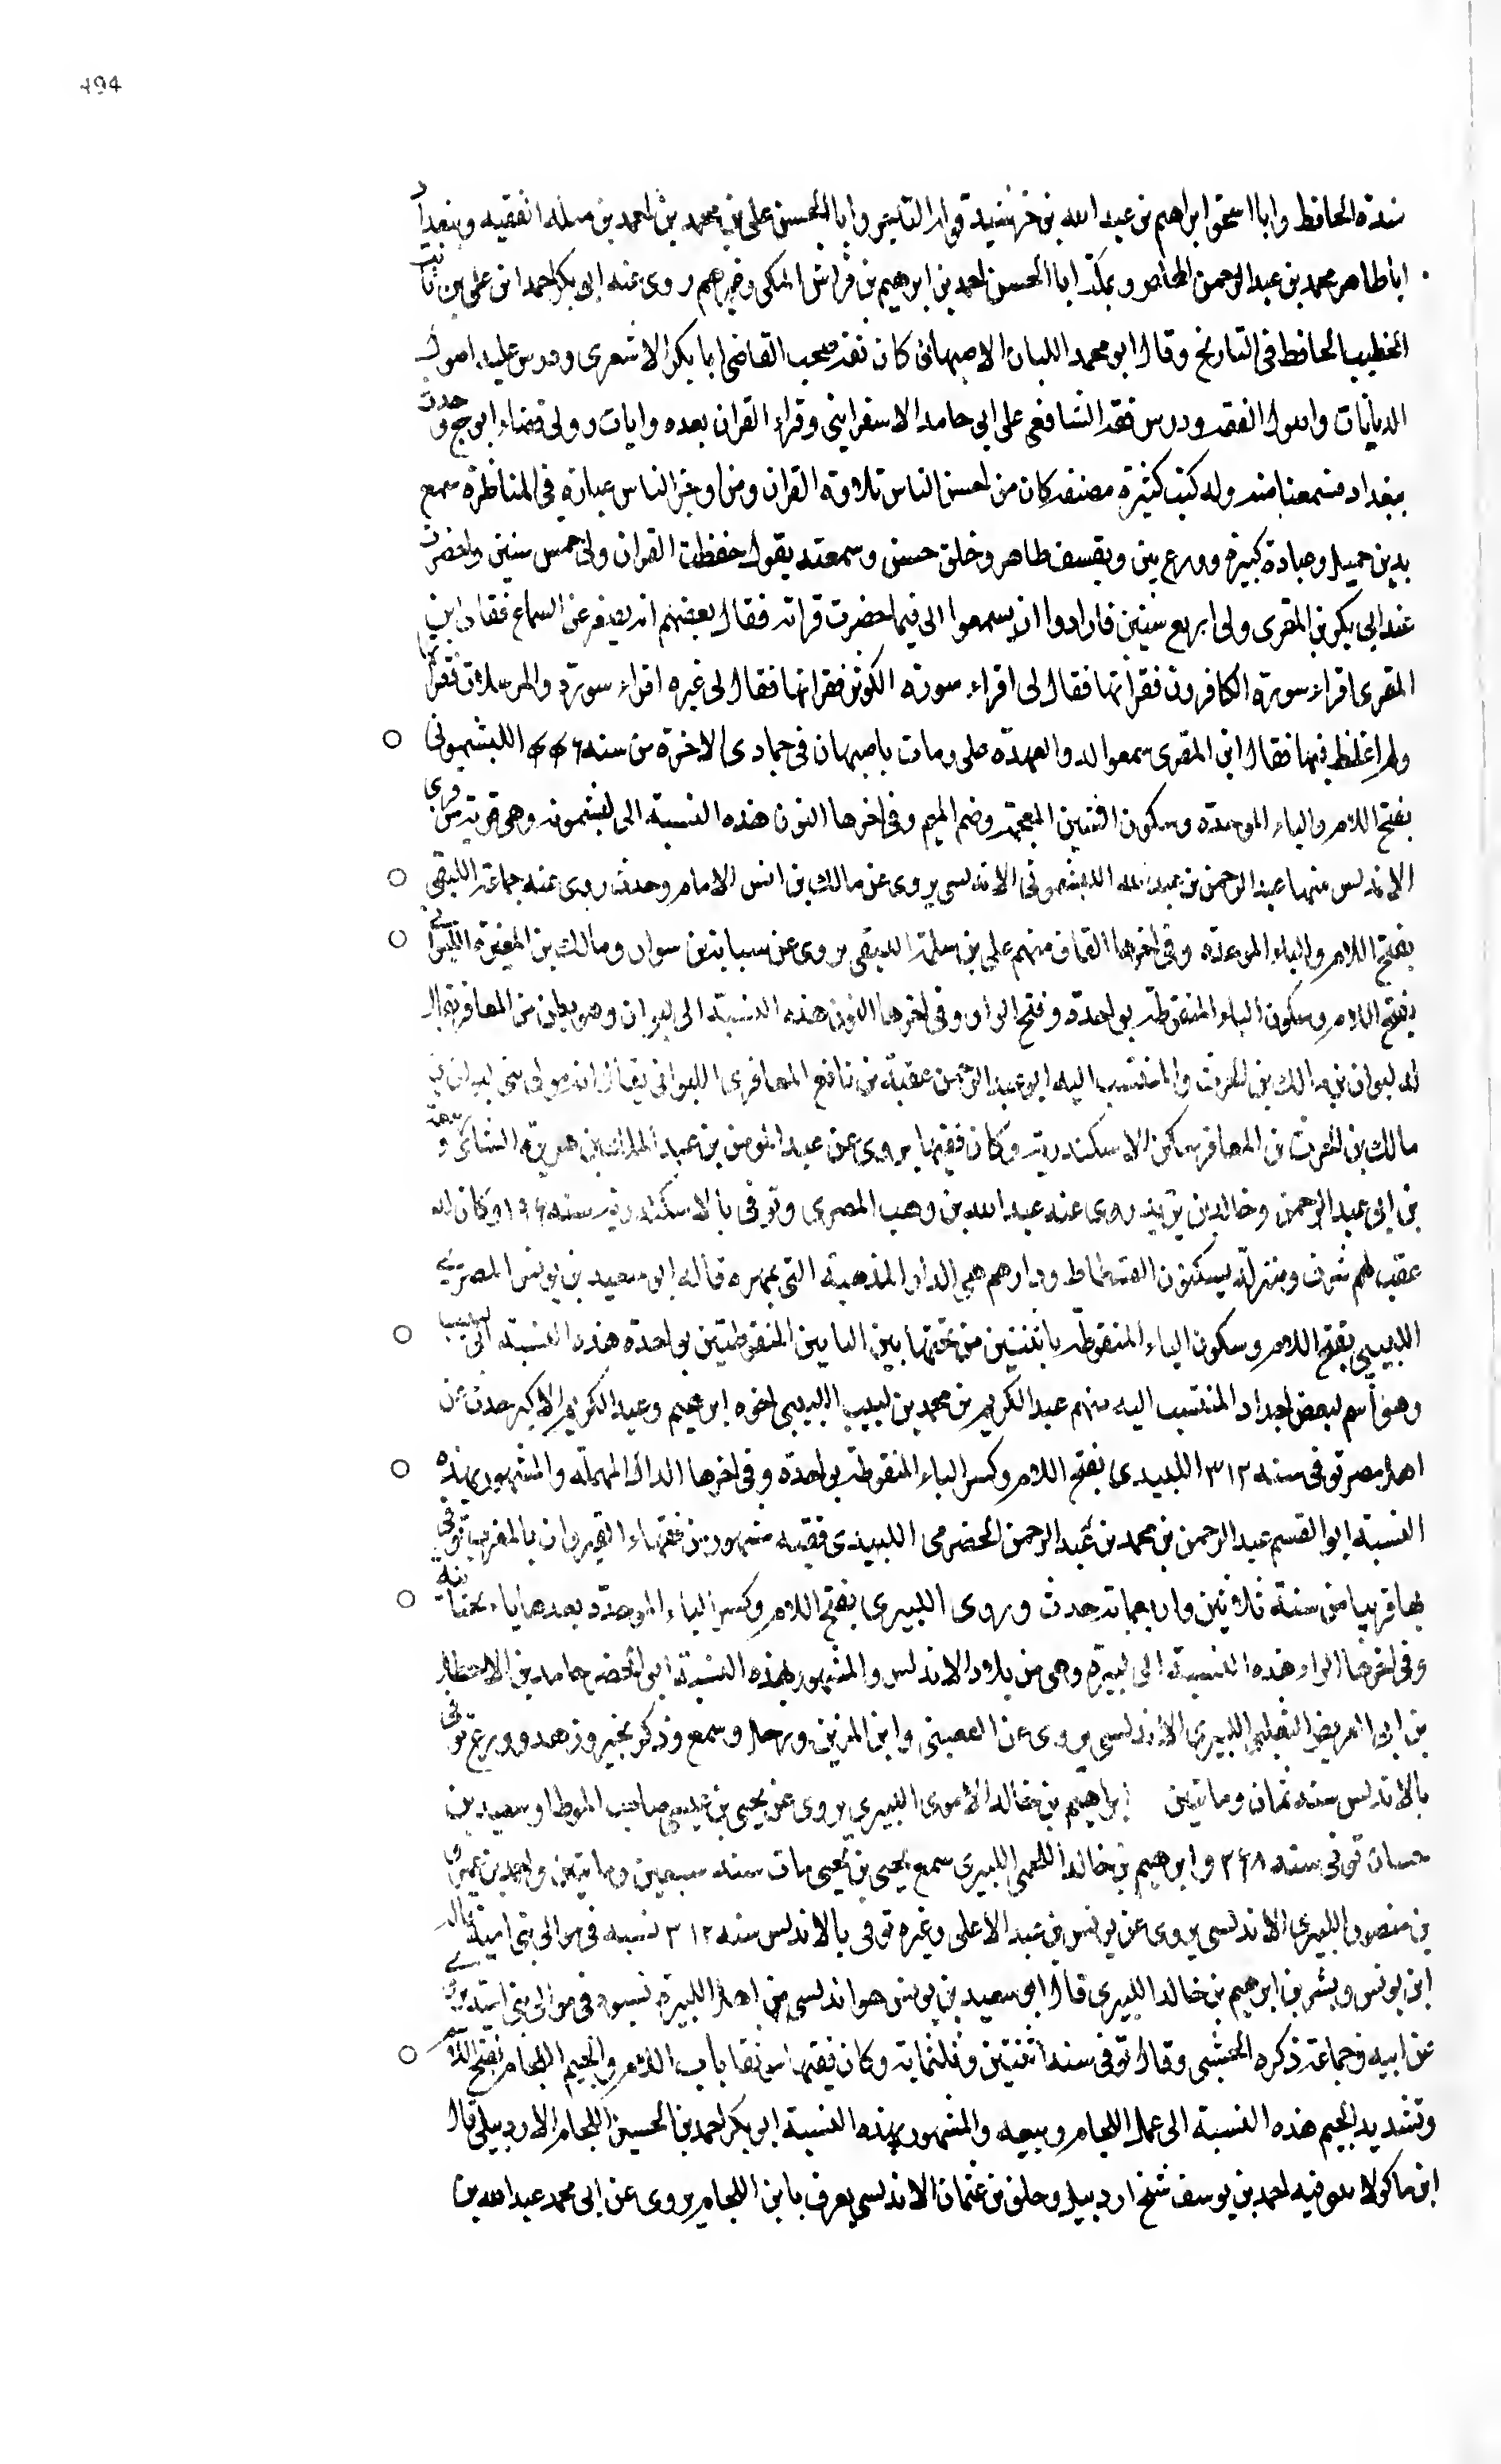 494
مندة الحافظ وابا اسحق ابراهيم بن عبد الله بن خرشيد قوله التاجر وابا الحسن على بن محمد بن احمد بن ميله الفقيه وببغداد
ابا طاهر محمد بن عبد الرحمن المخلص وبمكة ابا الحسن احمد بن ابرهيم بن فراش المكى وغيرهم روى عنه ابو بكر احمد ابن على بن ثابت
الخطيب الحافظ فى التاريخ وقال ابو محمد اللبان الاصبهانى كان ثقة صحب القاضى ابا بكر الاشعرى ودرس عليه اصول
الديانات واصول الفقه ودرس فقه الشافعى على ابى حامد الاسفراينى وقراء القران بعده روايات وولى قضاء ايوج وحدث
ببغداد فسمعنا منه وله كتب كثيرة مصنفه كان من احسن الناس تلاوة القران ومن اوجز الناس عبارة فى المناظرة مع
تدين جميل وعبادة كثيرة وورع بين وتقشف ظاهر وخلق حسن وسمعته يقول حفظت القران ولى خمس سنين واحضرت
عند ابى بكر بن المقرى ولى اربع سنين فارادوا ان يسمعوا الى فيما حضرت قراته فقال بعضهم انه يصغر عن السماع فقال ابن
المقرى اقراء سورة الكافرون فقراتها فقال لى اقراء سورة الكوثر فقراتها فقال لى غيره اقراء سورة والمرسلات فقراتها
ولم اغلط فيها فقال ابن المقرى سمعوا له والعهدة على ومات باصبهان فى جمادى الاخرة من سنه ۴۴۶ اللبشمونى
بفتح اللام والباء الموحدة وسكون الشين المعجمة وضم الميم وفى اخرها النون هذه النسبة الى لبشمونه وهى قرية من قرى
الاندلس منها عبد الرحمن بن عبد الله اللبشمونى الاندلسى يروى عن مالك بن انس الامام وحدث روى عنه جماعة اللبقى
بفتح اللام والباء الموحدة وفى اخرها القاف منهم على بن سلمة اللبقى يروى عن شبابة بن سوار ومالك بن المغيرة اللبوانى
بفتح اللام وسكون الباء المنقوطة بواحدة وفتح الواو وفى اخرها النون هذه النسبة الى لبوان وهو بطن من المعافر يقال
له لبوان بن مالك بن الحرث والمنتسب اليه ابو عبد الرحمن عقبة بن نافع المعافرى اللبوانى يقال انه مولى بنى لبوان بن
مالك بن الحرث بن المعافر سكن الاسكندرية وكان فقيها يروى عن عبد المومن بن عبد الملك بن هبيرة الشاى وربيعة
بن ابى عبد الرحمن وخالد بن يزيد روى عنه عبد الله بن وهب المصرى وتوفى بالاسكندرية سنه ۱۹۶ وكان له
عقب لهم شرف ومنزلة يسكنون الفسطاط ودارهم هى الدار المذهبة التى بمهره قاله ابو سعيد بن يونس المصرى
اللبيبى بفتح اللام وسكون الياء المنقوطة باثنتين من تحتها بين البايين المنقوطتين بواحدة هذه النسبة الى لبيب
وهو اسم لبعض اجداد المنتسب اليه منهم عبد الكريم بن محمد بن لبيب اللبيبى اخوه ابرهيم وعبد الكريم الاكبر حدث عن
اهل مصر توفى سنه ۳۱۲ اللبيدى بفتح اللام وكسر الباء المنقوطة بواحدة وفى اخرها الدال المهملة والمشهور بهذه
النسبة ابو القسم عبد الرحمن بن محمد بن عبد الرحمن الحضرمى اللبيدى فقيه مشهور من فقهاء القيروان بالمغرب توفى
بها قريبا من سنة ثلاثين واربعماية حدث وروى اللبيرى بفتح اللام وكسر الباء الموحدة بعدها ياء تحتانية
وفى اخرها الراء هذه النسبة الى لبيرة وهى من بلاد الاندلس والمشهور بهذه النسبة ابو الخضر حامد بن الاخطل
بن ابى العريض الثعلبى اللبيرى الاندلسى يروى عن العتبى وابن المزين ورحل وسمع وذكر بخير وزهد وورع توفى
بالاندلس سنة ثمان ومايتين ابراهيم بن خالد الاموى اللبيرى يروى عن يحيى بن عيسى صاحب الموطا وسعيد بن
حسان توفى سنه ۲۶۸ وابرهيم بن خالد اللخمى اللبيرى سمع يحيى بن يحيى مات سنه سبعين ومايتين واحمد بن عمرو
بن منصور اللبيرى الاندلسى يروى عن يونس بن عبد الاعلى وغيره توفى بالاندلس سنه ۳۱۲ نسبه فى موالى بنى امية قاله
ابن يونس وبشر بن ابرهيم بن خالد اللبيرى قال ابو سعيد بن يونس هو اندلسى من اهل اللبيرة نسبوه فى موالى بنى امية يروى
عن ابيه وجماعة ذكره الخشنى وقال توفى سنه اثنتين وثلثماية وكان فقيها موثقا باب اللام والجيم اللجام بفتح اللام
وتشديد الجيم هذه النسبة الى عمل اللجام وبيعه والمشهور بهذه النسبة ابو بكر احمد بن الحسين اللجام الاردبيلى قال
ابن ماكولا هو فيه احمد بن يوسف شيخ اردبيل وخلف بن عثمان الاندلسى يعرف بابن اللجام يروى عن ابى محمد عبد الله بن